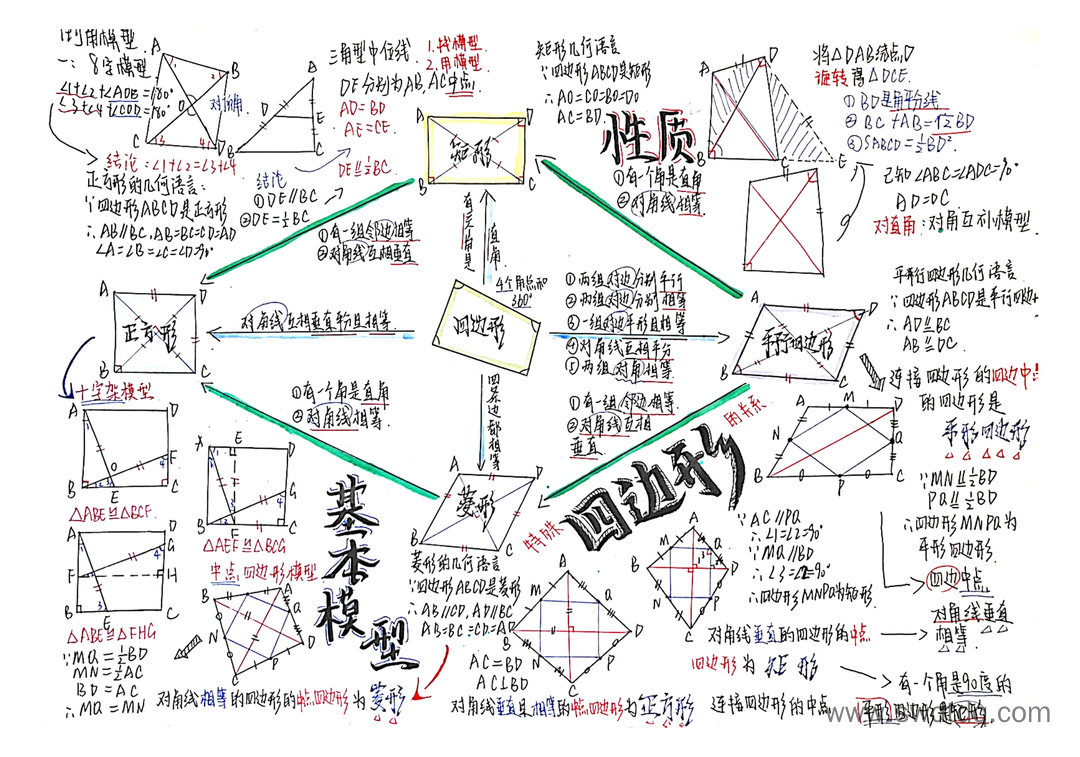 利用模型
一: 8字模型
∠1+∠2+∠AOB=180°
∠3+∠4+∠COD=180°
对顶角
结论:∠1+∠2=∠3+∠4
正方形的几何语言:
∵四边形ABCD是正方形
∴AB∥BC.AB=BC=CD=AD
∠A=∠B=∠C=∠D=90°
三角型中位线
1.找模型
2.用模型
DE分别为AB,AC中点
AD=BD
AE=CE
DE⫽½BC
结论
①DE∥BC
②DE=½BC
矩形几何语言
∵四边形ABCD是矩形
∴AO=CO=BO=DO
AC=BD
矩形
性质
①有一个角是直角
②对角线相等
将△DAB绕点D
旋转离△DCE.
①BD是角平分线
②BC+AB=√2BD
③SABCD=½BD²
已知∠ABC=∠ADC=90°
AD=DC
对直角:对角互补模型
①有一组邻边相等
②对角线互相垂直
有三个角是
直角
4个角总和
360°
四边形
①两组对边分别平行
②两组对边分别相等
③一组对边平形且相等
④对角线互相平分
⑤两组对角相等
对角线互相垂直平分且相等
正方形
平行四边形
平行四边形几何语言
∵四边形ABCD是平行四边
∴AD⫽BC
AB⫽DC
连接四边形的四边中
的四边形是
平形四边形
∵MN⫽½BD
PQ⫽½BD
∴四边形MNPQ为
平形四边形
四边中点
对角线垂直
相等
十字架模型
△ABE≌△BCF
△AEF≌△BCG
△ABE≌△FHG
①有一个角是直角
②对角线相等
四条边都相等
①有一组邻边相等
②对角线互相
垂直
菱形
特殊
四边形
的关系
基本模型
中点四边形模型
∵MQ=½BD
MN=½AC
BD=AC
∴MQ=MN
对角线相等的四边形的中点四边形为菱形
菱形的几何语言
∵四边形ABCD是菱形
∴AB∥CD,AD∥BC
AB=BC=CD=AD
AC=BD
AC⊥BD
对角线垂直且相等的中点四边形为正方形
∵AC∥PQ
∴∠1=∠2=90°
∵MQ∥BD
∴四边形MNPQ为矩形
对角线垂直的四边形的中点
四边形为矩形
连接四边形的中点
有一个角是90度的
平形四边形是矩形